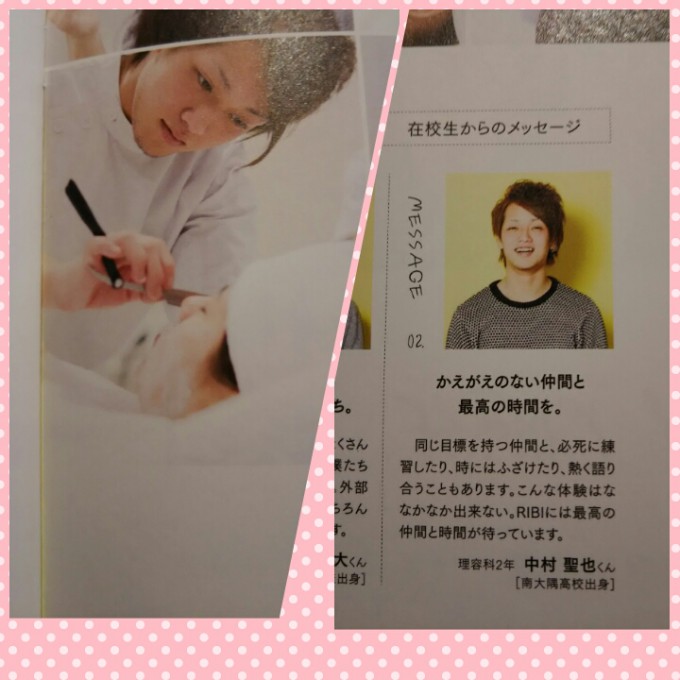 在校生からのメッセージ
MESSAGE
02
かえがえのない仲間と
最高の時間を。
同じ目標を持つ仲間と、必死に練
習したり、時にはふざけたり、熱く語り
合うこともあります。こんな体験はな
なかなか出来ない。RIBIには最高の
仲間と時間が待っています。
理容科2年 中村 聖也くん
[南大隅高校出身]
ち。
くさん
僕たち
外部
ちろん
す。
大くん
出身]